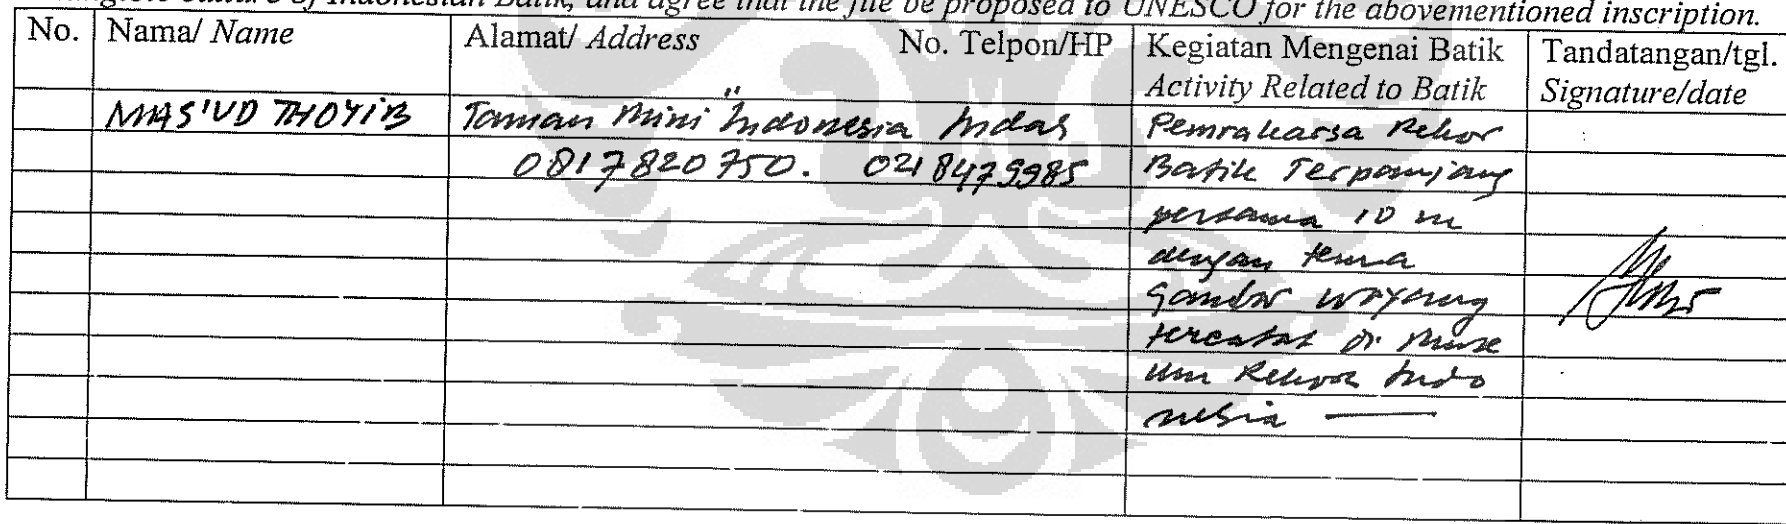 ngible culture of Indonesian Batik, and agree that the file be proposed to UNESCO for the abovementioned inscription.
No. Nama/ Name Alamat/ Address No. Telpon/HP Kegiatan Mengenai Batik Tandatangan/tgl.
Activity Related to Batik Signature/date
MAS'UD THOYIB Taman Mini "Indonesia Indah Pemrakarsa Rekor
0817820750. 0218479985 Batik Terpanjang
persama 10 m
dengan tema
Gambar Wayang
tercatat Di Muse
um Rekor Indo
nesia —